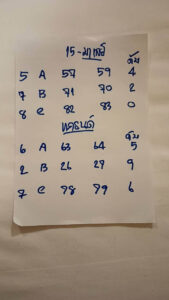 15-มาเลย์
ดับ
5 A 57 59 4
7 B 71 70 2
8 C 82 83 0
ดับ
6 A 63 64 5
2 B 26 27 9
7 C 78 79 6